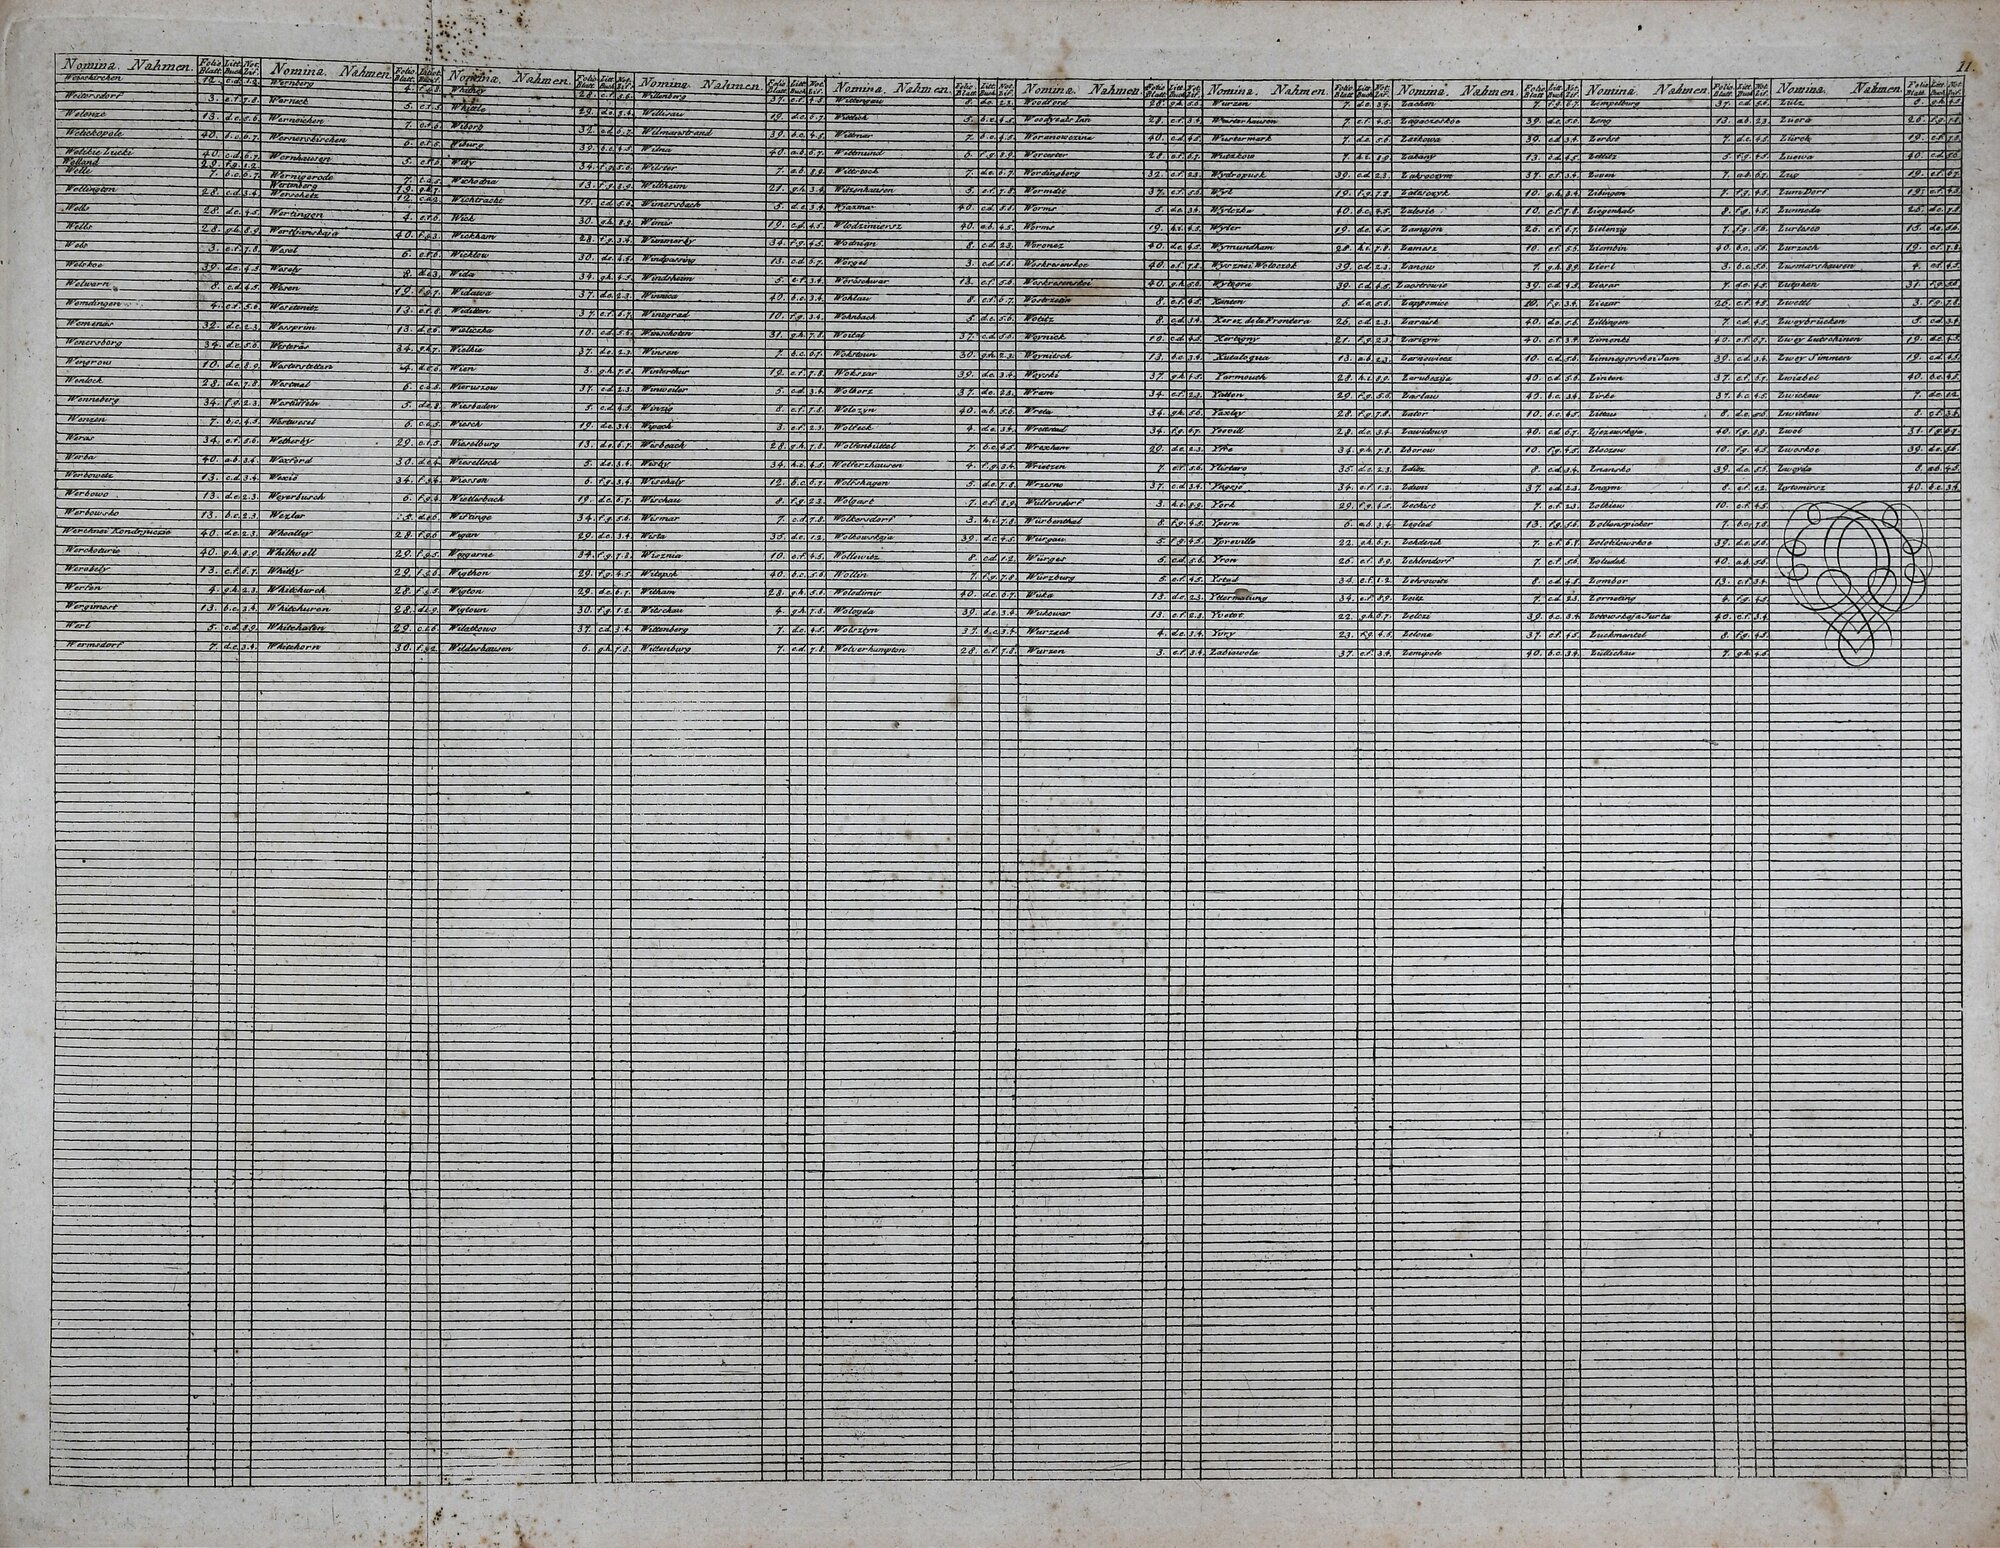 11.
Nomina. Nahmen. Folio Blatt. Litt. Buch. Not. Zif.
Weisskirchen 12. c.d. 1.2.
Weitersdorf 3. e.f. 7.8.
Welenze 13. d.e. 5.6.
Welickopole 40. b.c. 6.7.
Welikie Lucki 40. c.d. 6.7.
Welland 29. f.g. 1.2.
Welle 7. b.c. 6.7.
Wellington 28. c.d. 3.4.
Wells 28. d.e. 4.5.
Wells 28. g.h. 8.9.
Wels 3. e.f. 7.8.
Welskoe 39. d.e. 4.5.
Welwarn 8. c.d. 4.5.
Wemdingen 4. e.f. 5.6.
Womenäs 32. d.e. 2.3.
Wenersborg 34. d.e. 5.6.
Wengrow 10. d.e. 8.9.
Wenlock 28. d.e. 7.8.
Wenneberg 34. f.g. 2.3.
Wenzen 7. b.c. 4.5.
Weras 34. e.f. 5.6.
Werba 40. a.b. 3.4.
Werbowetz 13. c.d. 3.4.
Werbowo 13. d.e. 2.3.
Werbowsko 13. b.c. 2.3.
Werchnei Kondrjuczie 40. d.e. 2.3.
Werchoturie 40. g.h. 8.9.
Werebely 13. e.f. 6.7.
Werfen 4. g.h. 2.3.
Wergimost 13. b.c. 3.4.
Werl 5. c.d. 8.9.
Wermsdorf 7. d.e. 3.4.
Nomina. Nahmen.
Wernberg 4.
Werneck 5.
Werneichen 7.
Wernerskirchen 6.
Wernhausen 5.
Wernigerode 7.
Wertenberg 19.
Werschetz 12.
Wertingen 4.
Wertlianskaja 40.
Wesel 6.
Wesely 8.
Wesen 19.
Wesetenitz 13.
Wesprim 13.
Westeräs 34.
Westerstetten 4.
Westmal 6.
Westüffeln 5.
Westwesel 6.
Wetherby 29.
Wexford 30.
Wexiö 34.
Weyerbusch 6.
Wezlar 5.
Wheatley 28.
Whitwell 29.
Whitby 29.
Whitchurch 28.
Whitchuren 28.
Whitehafen 29.
Whitehorn 30.
Nomina. Nahmen. Folio Blatt. Litt. Buch. Not. Zif.
Whithey 28. e.f. 5.6.
Whittle 29. d.e. 3.4.
Wiborg 32. c.d. 6.7.
Wiburg 39. b.c. 4.5.
Wiby 34. f.g. 5.6.
Wichodna 13. f.g. 8.9.
Wichtracht 19. c.d. 5.6.
Wick 30. g.h. 8.9.
Wickham 28. f.g. 3.4.
Wicklow 30. d.e. 4.5.
Wida 34. g.h. 4.5.
Widawa 37. d.e. 2.3.
Widitten 37. e.f. 6.7.
Wieliczka 10. c.d. 5.6.
Wielkie 37. d.e. 2.3.
Wien 3. g.h. 7.8.
Wieruszow 37. c.d. 2.3.
Wiesbaden 5. c.d. 4.5.
Wiesch 19. d.e. 3.4.
Wieselburg 13. d.e. 6.7.
Wiesloch 5. d.e. 3.4.
Wiessen 6. f.g. 3.4.
Wietlesbach 19. d.e. 6.7.
Wiftinge 34. f.g. 5.6.
Wigan 29. d.e. 3.4.
Wiggarne 34. f.g. 7.8.
Wigthon 29. f.g. 4.5.
Wigton 29. d.e. 6.7.
Wigtoun 30. f.g. 1.2.
Wilatkowo 37. c.d. 3.4.
Wildeshausen 6. g.h. 7.8.
Nomina. Nahmen. Folio Blatt. Litt. Buch. Not. Zif.
Willenberg 37. e.f. 4.5.
Willisau 19. d.e. 6.7.
Wilmanstrand 39. b.c. 4.5.
Wilna 40. a.b. 6.7.
Wilster 7. a.b. 8.9.
Wiltheim 21. g.h. 3.4.
Wimersbach 5. d.e. 3.4.
Wimis 19. c.d. 4.5.
Wimmerby 34. f.g. 4.5.
Windpassing 13. c.d. 6.7.
Windsheim 5. e.f. 3.4.
Winnica 40. b.c. 3.4.
Winograd 10. f.g. 3.4.
Winschoten 31. g.h. 7.8.
Winsen 7. b.c. 6.7.
Winterthur 19. e.f. 7.8.
Winweiler 5. c.d. 3.4.
Winzig 8. e.f. 7.8.
Wipach 3. e.f. 2.3.
Wisbeach 28. g.h. 7.8.
Wisby 34. h.i. 4.5.
Wischaly 12. b.c. 6.7.
Wischau 8. f.g. 2.3.
Wismar 7. c.d. 7.8.
Wista 35. d.e. 1.2.
Wisznia 10. e.f. 4.5.
Witepsk 40. b.c. 5.6.
Witham 28. g.h. 5.6.
Witschau 4. g.h. 7.8.
Wittenberg 7. d.e. 4.5.
Wittenburg 7. c.d. 7.8.
Nomina. Nahmen. Folio Blatt. Litt. Buch. Not. Zif.
Wittingau 8. d.e. 2.3.
Wittlich 5. b.c. 4.5.
Wittmar 7. b.c. 4.5.
Wittmund 6. f.g. 8.9.
Wittstoch 7. d.e. 6.7.
Witzenhausen 5. e.f. 7.8.
Wjazma 40. c.d. 5.6.
Wlodzimiersz 40. a.b. 4.5.
Wodnian 8. c.d. 2.3.
Wörgel 3. c.d. 5.6.
Wöröschwar 13. e.f. 5.6.
Wohlau 8. e.f. 6.7.
Wohnbach 5. d.e. 5.6.
Woital 37. c.d. 5.6.
Wokstoun 30. g.h. 2.3.
Wokszar 39. d.e. 3.4.
Wolborz 37. d.e. 2.3.
Wolczyn 40. a.b. 5.6.
Wolfeck 4. d.e. 3.4.
Wolfenbüttel 7. b.c. 4.5.
Wolferzhausen 4. f.g. 3.4.
Wolfshagen 5. d.e. 7.8.
Wolgast 7. e.f. 8.9.
Wolkersdorf 3. h.i. 7.8.
Wolkowskaja 39. d.e. 4.5.
Wollewitz 8. c.d. 1.2.
Wollin 7. f.g. 7.8.
Wolodimir 40. d.e. 6.7.
Wologda 39. d.e. 3.4.
Wolsztyn 37. b.c. 3.4.
Wolverhampton 28. e.f. 7.8.
Nomina. Nahmen. Folio Blatt. Litt. Buch. Not. Zif.
Woodford 28. g.h. 5.6.
Woodyeats Inn 28. e.f. 3.4.
Woranowczina 40. c.d. 4.5.
Worcester 28. e.f. 6.7.
Wordingborg 32. e.f. 2.3.
Wormdit 37. e.f. 5.6.
Worms 5. d.e. 3.4.
Worms 19. h.i. 4.5.
Woronez 40. d.e. 4.5.
Woskresenskoe 40. e.f. 7.8.
Woskresenskoi 40. g.h. 5.6.
Wostrzetin 8. e.f. 4.5.
Wotitz 8. c.d. 3.4.
Woynick 10. c.d. 4.5.
Woynitsch 13. b.c. 3.4.
Woyski 37. g.h. 4.5.
Wram 34. e.f. 2.3.
Wreta 34. g.h. 5.6.
Wrettstad 34. f.g. 6.7.
Wrexham 29. d.e. 2.3.
Wrietzen 7. e.f. 5.6.
Wrzesno 37. c.d. 3.4.
Wülfersdorf 3. h.i. 8.9.
Würbenthal 8. f.g. 4.5.
Wurgau 5. f.g. 4.5.
Würges 5. c.d. 5.6.
Würzburg 5. e.f. 4.5.
Wuka 13. d.e. 2.3.
Wukowar 13. e.f. 2.3.
Wurzach 4. d.e. 3.4.
Wurzen 3. e.f. 3.4.
Nomina. Nahmen. Folio Blatt. Litt. Buch. Not. Zif.
Wurzen 7. d.e. 3.4.
Wusterhausen 7. e.f. 4.5.
Wustermark 7. d.e. 5.6.
Wutzkow 7. h.i. 8.9.
Wydropusk 39. c.d. 2.3.
Wyl 19. f.g. 7.8.
Wylczka 40. b.c. 4.5.
Wyler 19. d.e. 4.5.
Wymundham 28. h.i. 7.8.
Wysznei Woloczok 39. c.d. 2.3.
Wytegra 39. c.d. 4.5.
Xanten 6. d.e. 5.6.
Xerez de la Frontera 26. c.d. 2.3.
Xertigny 21. f.g. 2.3.
Xutalogua 13. a.b. 2.3.
Yarmouth 28. h.i. 8.9.
Yatton 29. f.g. 5.6.
Yaxley 28. f.g. 7.8.
Yeovill 28. d.e. 3.4.
Yfre 34. g.h. 7.8.
Ylistaro 35. d.e. 2.3.
Yngsjö 34. e.f. 1.2.
York 29. f.g. 4.5.
Ypern 6. a.b. 3.4.
Ypreville 22. g.h. 6.7.
Yron 26. e.f. 8.9.
Ystad 34. e.f. 1.2.
Yttermalung 34. e.f. 8.9.
Yvetot 22. g.h. 6.7.
Yvry 23. f.g. 4.5.
Zabiawola 37. e.f. 3.4.
Nomina. Nahmen. Folio Blatt. Litt. Buch. Not. Zif.
Zachan 7. f.g. 6.7.
Zagaczeskoe 39. d.e. 5.6.
Zaikowa 39. c.d. 3.4.
Zakany 13. c.d. 4.5.
Zakroczym 37. e.f. 3.4.
Zalaszczyk 10. g.h. 3.4.
Zalesie 10. e.f. 7.8.
Zamajon 26. e.f. 6.7.
Zamosz 10. e.f. 5.6.
Zanow 7. g.h. 8.9.
Zaostrowie 39. c.d. 4.5.
Zapponice 10. f.g. 3.4.
Zaraisk 40. d.e. 5.6.
Zarizyn 40. e.f. 3.4.
Zarnowiecz 10. c.d. 5.6.
Zarubezija 40. c.d. 5.6.
Zaslaw 40. b.c. 3.4.
Zator 10. b.c. 4.5.
Zawidowo 40. c.d. 6.7.
Zborow 10. f.g. 4.5.
Zditz 8. c.d. 3.4.
Zduni 37. c.d. 2.3.
Zechist 7. e.f. 2.3.
Zegled 13. f.g. 5.6.
Zehdenik 7. e.f. 6.7.
Zehlendorf 7. e.f. 5.6.
Zehrowitz 8. c.d. 4.5.
Zeitz 7. c.d. 2.3.
Zelczi 39. b.c. 3.4.
Zelona 37. e.f. 4.5.
Zempole 40. b.c. 3.4.
Nomina. Nahmen. Folio Blatt. Litt. Buch. Not. Zif.
Zempelburg 37. c.d. 5.6.
Zeng 13. a.b. 2.3.
Zerbst 7. d.e. 4.5.
Zettitz 5. f.g. 4.5.
Zeven 7. a.b. 6.7.
Zibingen 7. f.g. 4.5.
Ziegenhals 8. f.g. 4.5.
Zielenzig 7. f.g. 5.6.
Ziembin 40. b.c. 5.6.
Zierl 3. b.c. 5.6.
Ziesar 7. d.e. 4.5.
Ziezar 26. e.f. 4.5.
Zillingen 7. c.d. 4.5.
Zimenki 40. e.f. 6.7.
Zimnegorskoi Jam 39. c.d. 3.4.
Zinten 37. e.f. 6.7.
Zirke 37. b.c. 4.5.
Zittau 8. d.e. 5.6.
Zjezewskaja 40. f.g. 8.9.
Zloczow 10. f.g. 4.5.
Zmansko 39. d.e. 5.6.
Znaym 8. e.f. 1.2.
Zolkiew 10. e.f. 4.5.
Zollenspicker 7. b.c. 7.8.
Zolotilowskoe 39. d.e. 5.6.
Zoludek 40. a.b. 5.6.
Zombor 13. e.f. 3.4.
Zorneting 4. f.g. 4.5.
Zotowskaja Jurta 40. e.f. 3.4.
Zuckmantel 8. f.g. 4.5.
Züllichau 7. g.h. 4.5.
Nomina. Nahmen. Folio Blatt. Litt. Buch. Not. Zif.
Zülz 8. g.h. 4.5.
Zuera 26. f.g. 7.8.
Zürch 19. e.f. 7.8.
Zuewa 40. c.d. 5.6.
Zug 19. e.f. 6.7.
Zum Dorf 19. e.f. 4.5.
Zumeda 26. d.e. 7.8.
Zurlasco 13. d.e. 5.6.
Zurzach 19. e.f. 7.8.
Zusmarshausen 4. e.f. 4.5.
Zutphen 31. f.g. 5.6.
Zwettl 3. f.g. 7.8.
Zweybrücken 5. c.d. 3.4.
Zwey Lutschinen 19. d.e. 4.5.
Zwey Simmen 19. c.d. 4.5.
Zwiabel 40. b.c. 4.5.
Zwickau 7. d.e. 1.2.
Zwittau 8. e.f. 3.4.
Zwol 31. f.g. 6.7.
Zwoskoe 39. d.e. 5.6.
Zwoyda 8. a.b. 4.5.
Zytomirsz 40. b.c. 3.4.